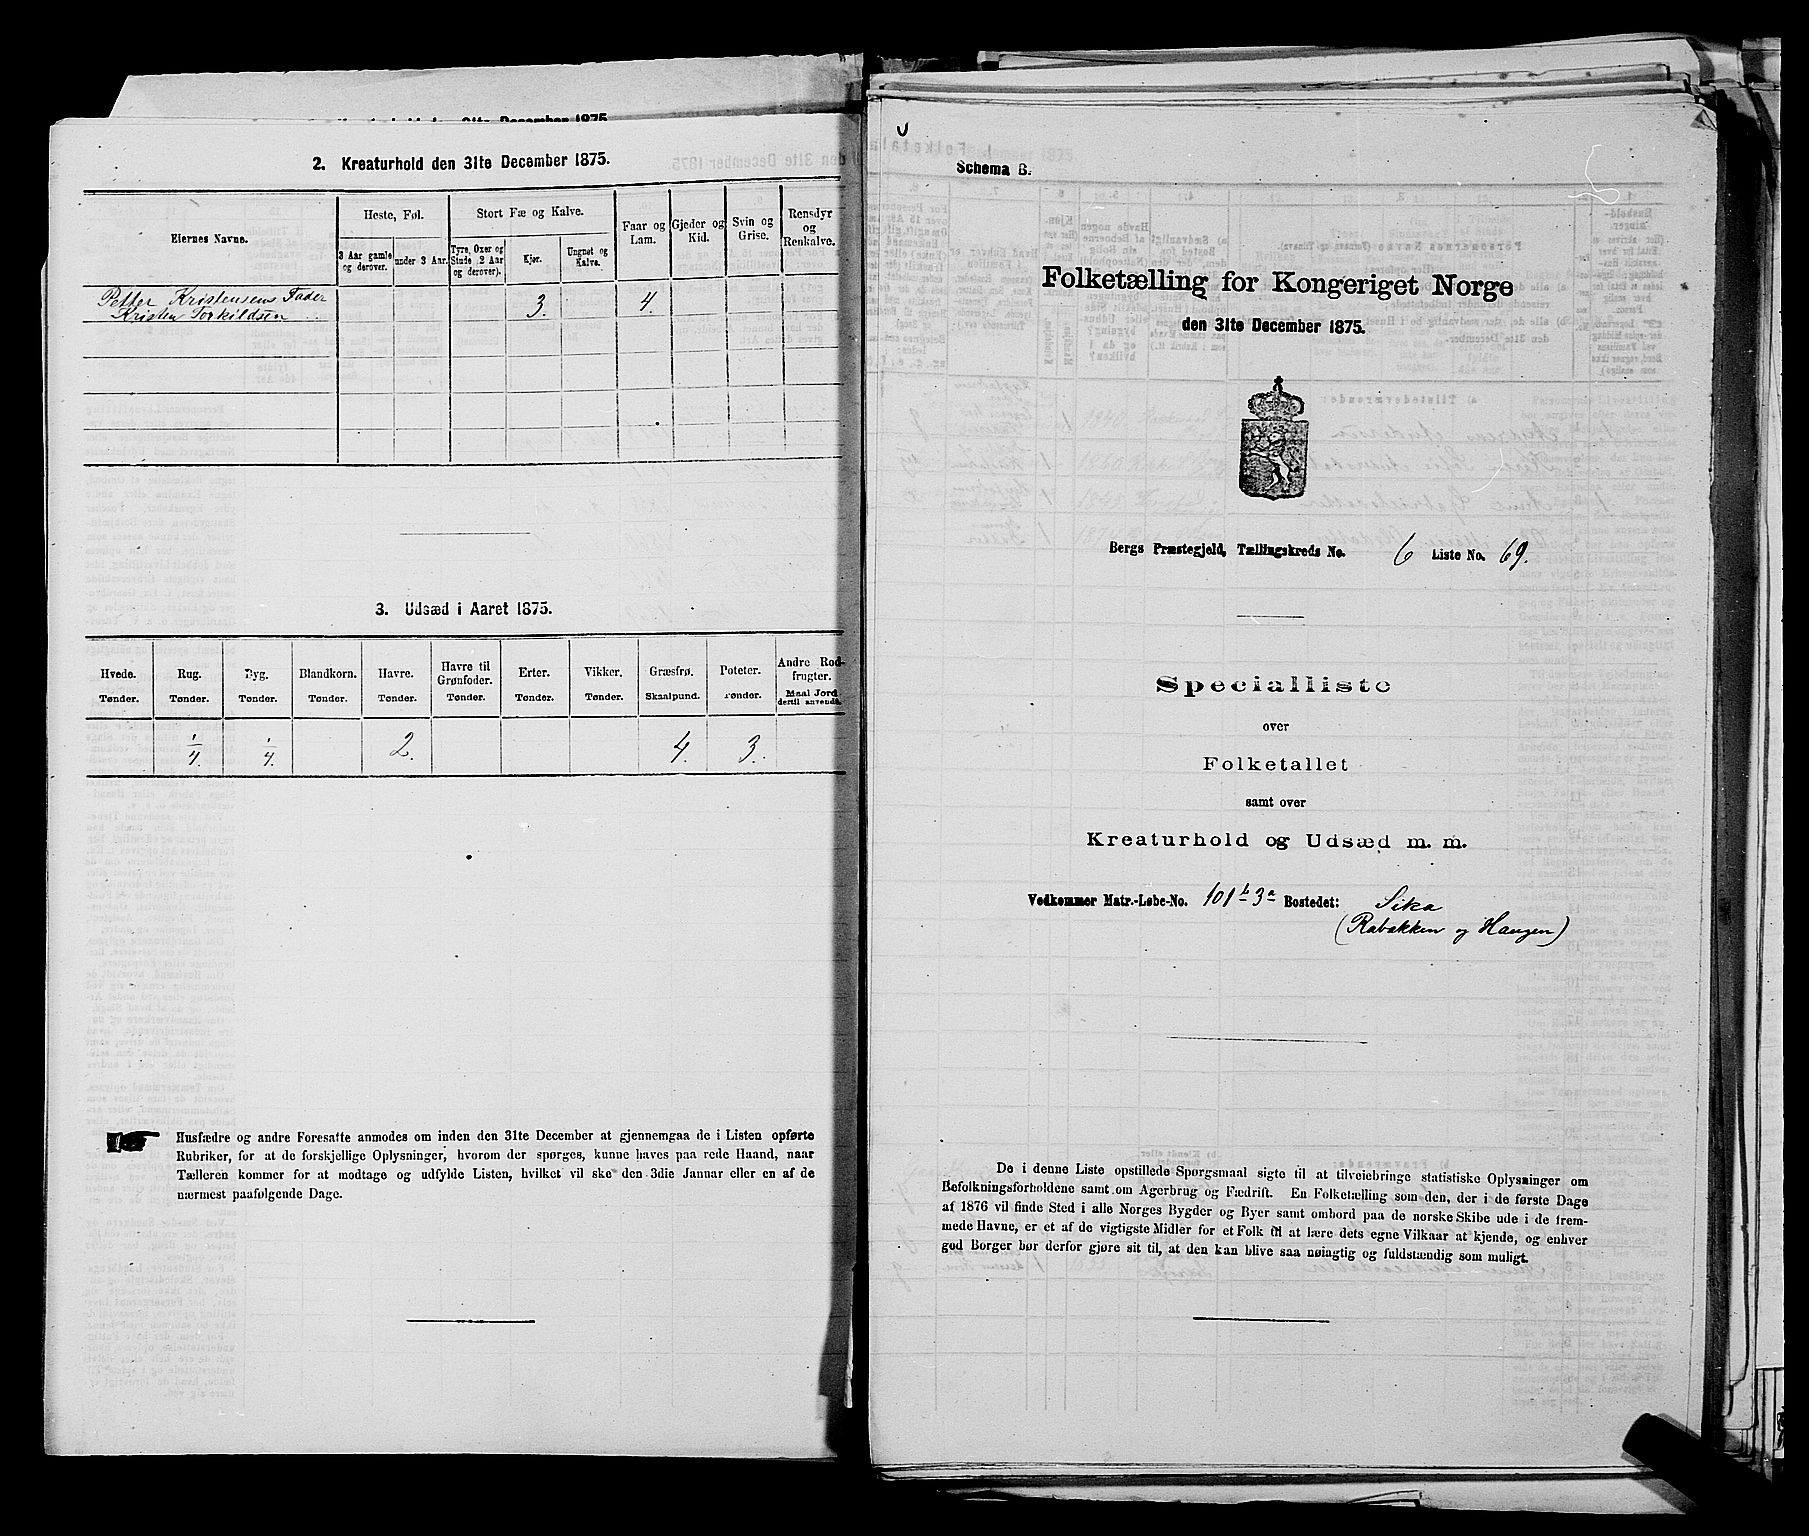 2. Kreaturhold den 31te December 1875.
Eiernes Navne.
Heste, Føl.
3 Aar gamle og derover.
under 3 Aar.
Stort Fæ og Kalve.
Tyre, Oxer og Stude (2 Aar og derover).
Kjør.
Ungnøt og Kalve.
Faar og Lam.
Gjeder og Kid.
Svin og Grise.
Rensdyr og Renkalve.
Petter Kristensens Fader
Kristen Torkildsen 3. 4.
3. Udsæd i Aaret 1875.
Hvede. Rug. Byg. Blandkorn. Havre. Havre til Grønfoder. Erter. Vikker. Græsfrø. Poteter. Andre Rodfrugter.
Tønder. Tønder. Tønder. Tønder. Tønder. Tønder. Tønder. Tønder. Skaalpund. Tønder. Maal Jord dertil anvendt.
1/4. 1/4. 2. 4. 3.
Husfædre og andre Foresatte anmodes om inden den 31te December at gjennemgaa de i Listen opførte
Rubriker, for at de forskjellige Oplysninger, hvorom der spørges, kunne haves paa rede Haand, naar
Tælleren kommer for at modtage og udfylde Listen, hvilket vil ske den 3die Januar eller en af de
nærmest paafølgende Dage.
Schema B.
Folketælling for Kongeriget Norge
den 31te December 1875.
Bergs Præstegjeld, Tællingskreds No. 6 Liste No. 69.
Specialliste
over
Folketallet
samt over
Kreaturhold og Udsæd m. m.
Vedkommer Matr.-Løbe-No. 101 b 3 a Bostedet: Sika
(Rabakken og Haugen)
De i denne Liste opstillede Spørgsmaal sigte til at tilveiebringe statistiske Oplysninger om
Befolkningsforholdene samt om Agerbrug og Fædrift. En Folketælling som den, der i de første Dage
af 1876 vil finde Sted i alle Norges Bygder og Byer samt ombord paa de norske Skibe ude i de frem-
mede Havne, er et af de vigtigste Midler for et Folk til at lære dets egne Vilkaar at kjende, og enhver
god Borger bør derfor gjøre sit til, at den kan blive saa nøiagtig og fuldstændig som muligt.